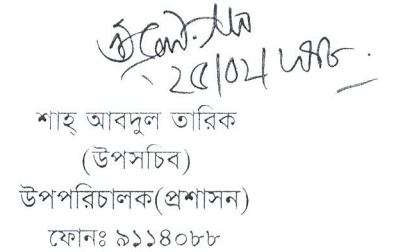 ২৫/০২/
শাহ্ আবদুল তারিক
(উপসচিব)
উপপরিচালক(প্রশাসন)
ফোনঃ ৯১১৪০৮৮